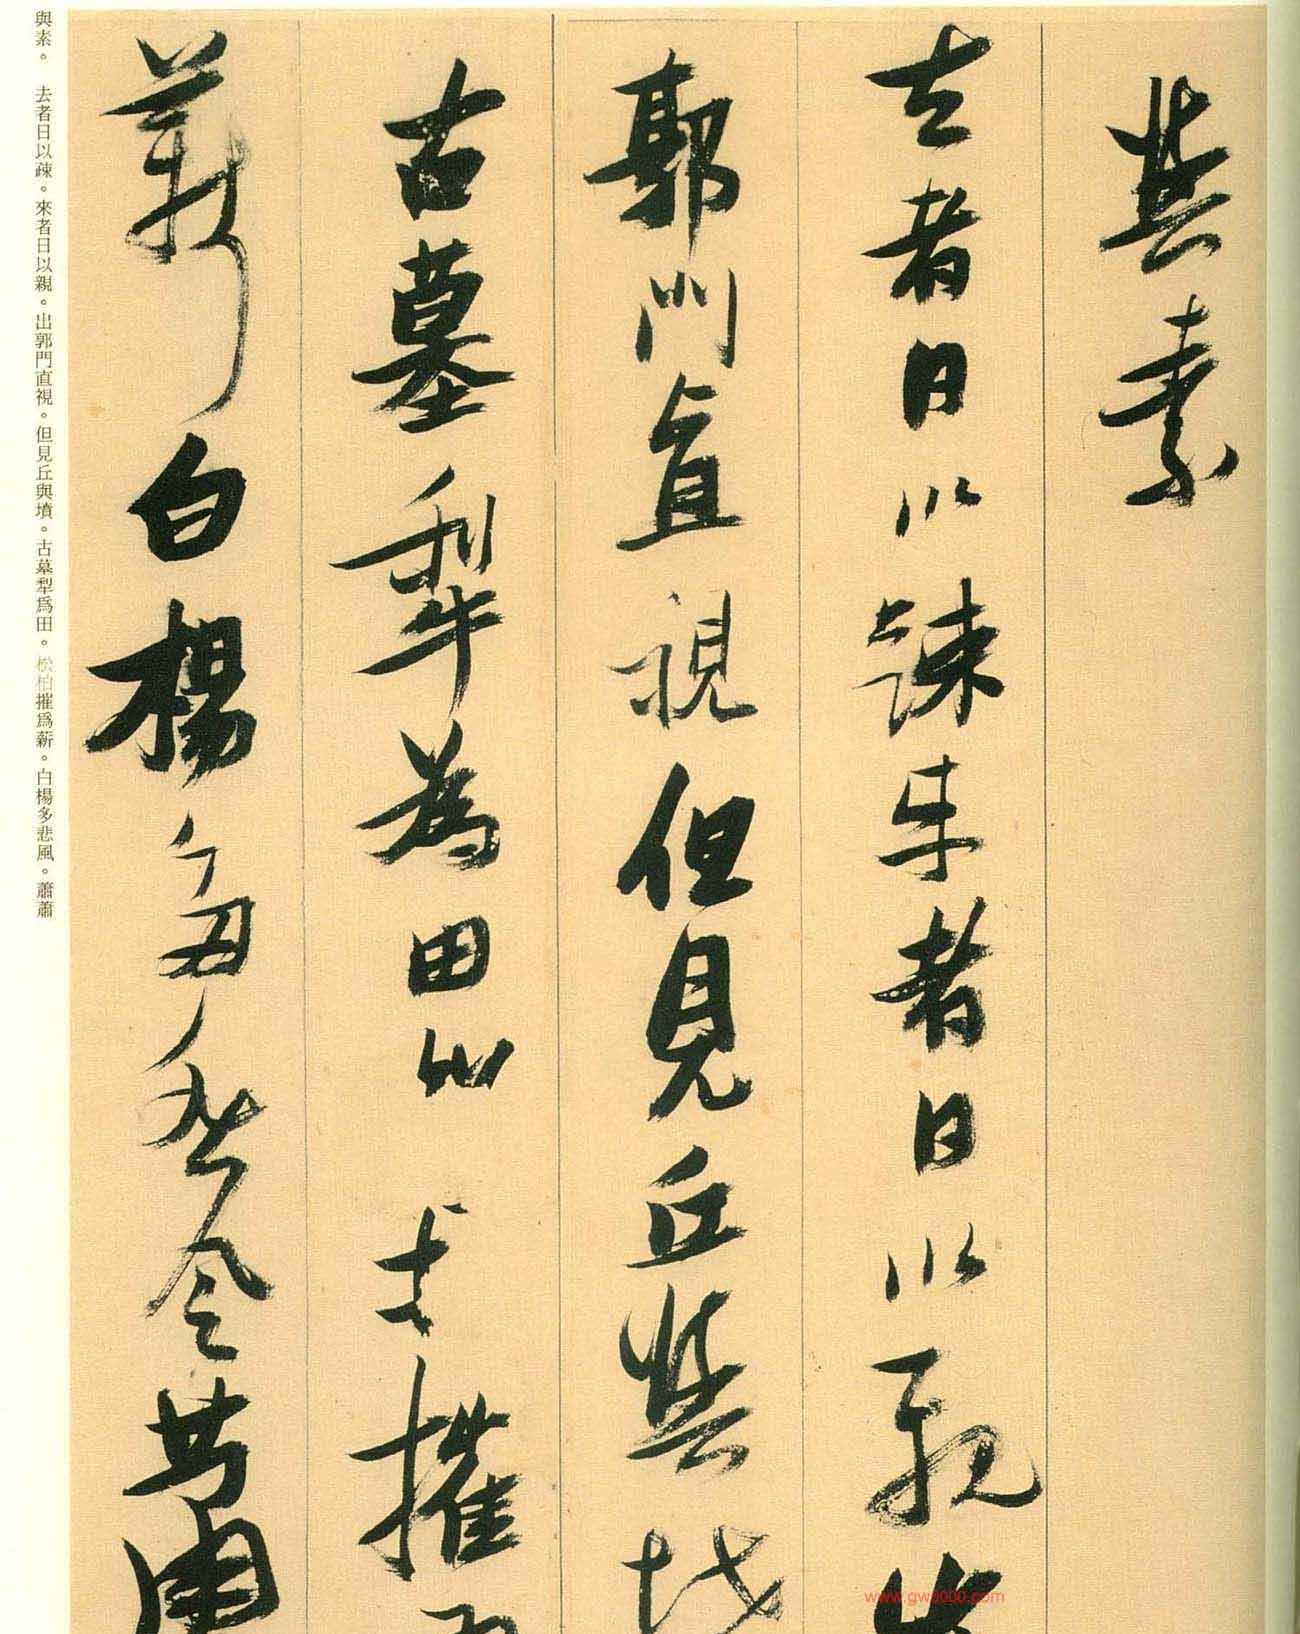 與素
去者日以踈来者日以親出
郭門直視但見丘與墳
古墓犁為田松柏摧為
薪白楊多悲風蕭
與素。　去者日以疎。來者日以親。出郭門直視。但見丘與墳。古墓犁爲田。松柏摧爲薪。白楊多悲風。蕭蕭